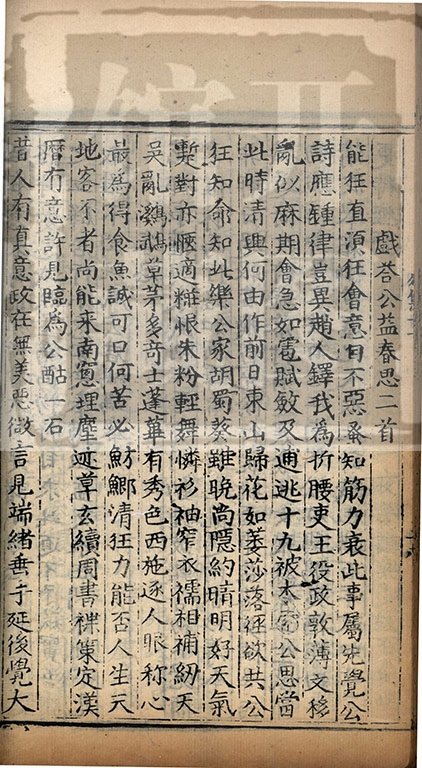 戲荅公益春思二首
能狂直須狂會意自不惡蚤知筋力衰此事屬先覺公
詩應鍾律豈異趙人鐸我為折腰吏王役政敦薄文移
亂似麻期會急如雹賦斂及逋逃十九被木索公思當
此時清興何由作前日東山歸花如萎莎落徑欲共公
狂知命知此樂公家胡蜀葵雖晚尚隱約晴明好天氣
蹔對亦愜適雜恨朱粉輕舞憐衫袖窄衣襦相補紉天
吳亂草茅多奇士蓬蓽有秀色西施逐人眼稱心
最為得食魚誠可口何苦必魴清狂力能否人生天
地客不者尚能來南窻理塵迹草玄續周書裨策定漢
曆有意許見臨為公酤一石
昔人有真意政在無美惡微言見端緒垂手延後覺大